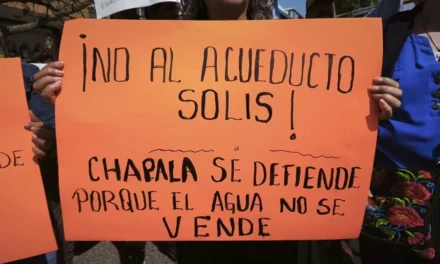 ¡NO AL ACUEDUCTO
SOLIS!
CHAPALA SE DEFIENDE
PORQUE EL AGUA NO SE
VENDE
DE